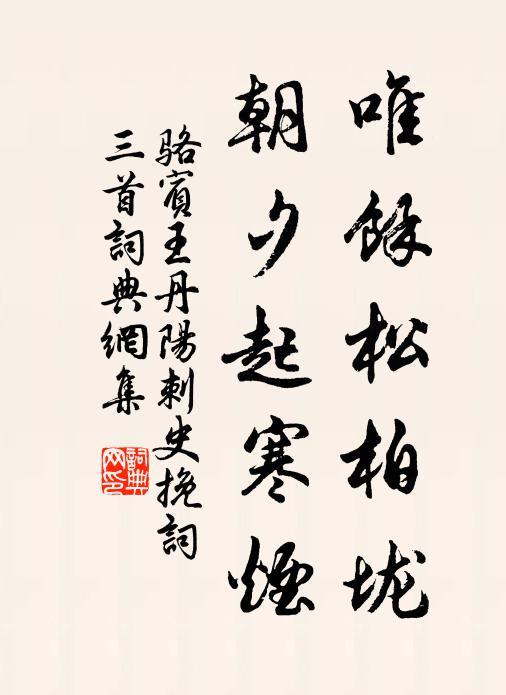 唯餘松柏垅
朝夕起寒煙
駱賓王丹陽刺史挽詞
三首詞典網集
詞典
网印